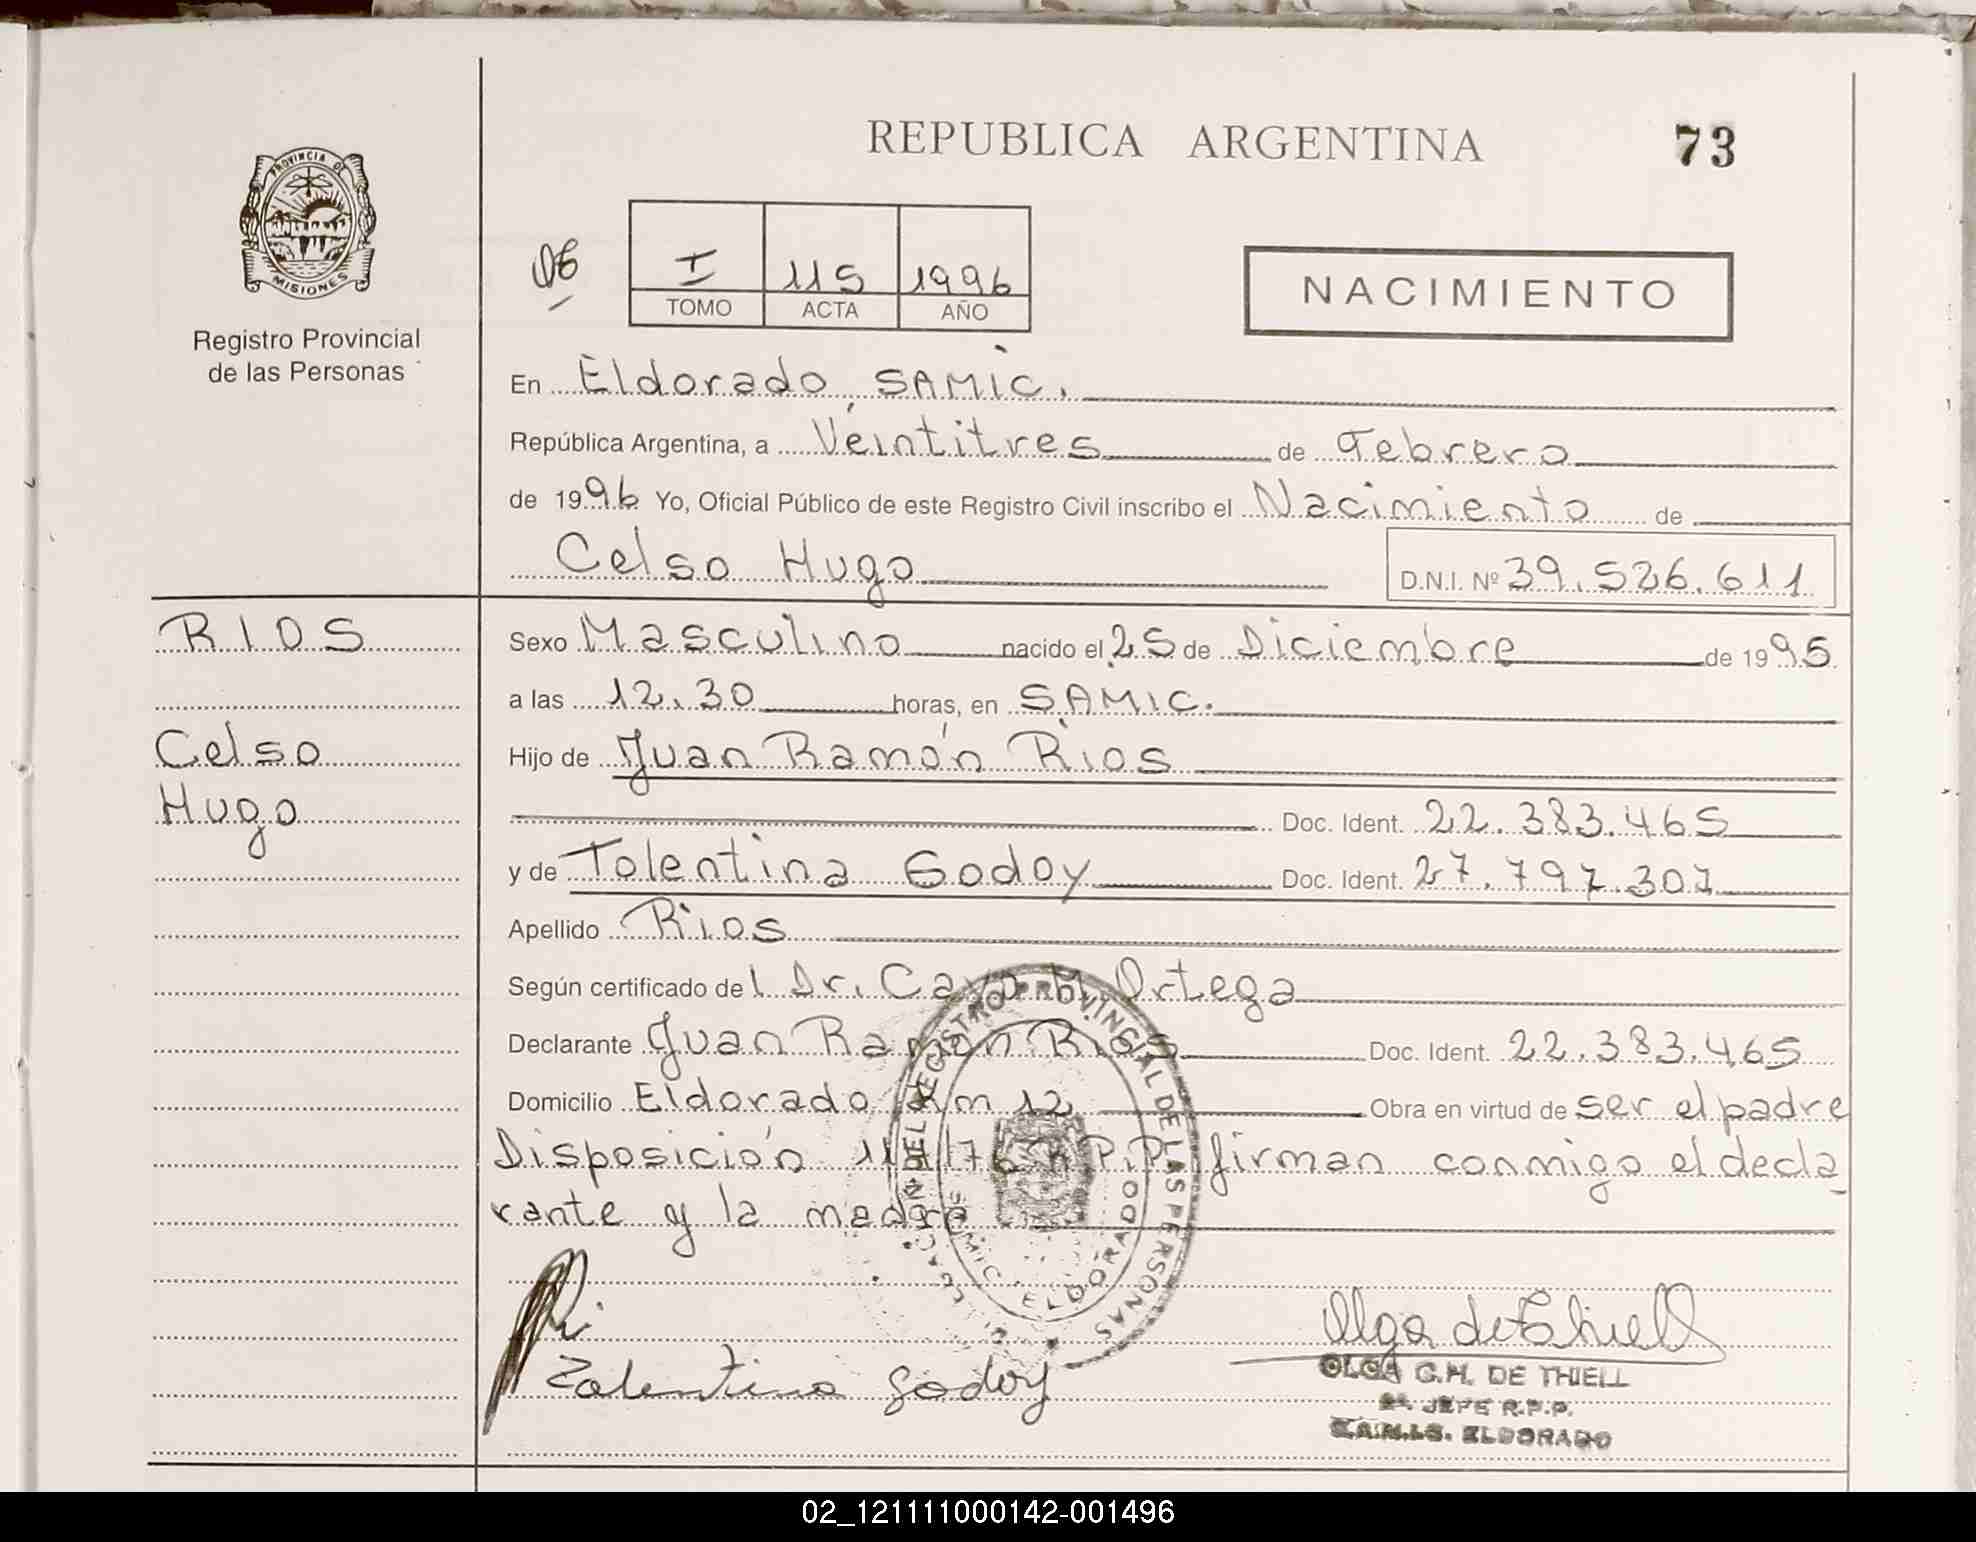 REPUBLICA ARGENTINA
73
PROVINCIA DE
MISIONES
Registro Provincial
de las Personas
I 115 1996
TOMO ACTA AÑO
NACIMIENTO
En Eldorado, SAMIC.
República Argentina, a Veintitres de Febrero
de 1996 Yo, Oficial Público de este Registro Civil inscribo el Nacimiento de
Celso Hugo D.N.I. Nº 39.526.611
RIOS
Celso
Hugo
Sexo Masculino nacido el 25 de Diciembre de 1995
a las 12.30 horas, en SAMIC.
Hijo de Juan Ramón Rios
Doc. Ident. 22.383.465
y de Tolentina Godoy Doc. Ident. 27.797.307
Apellido Rios
Según certificado del Dr. Cayo M Ortega
Declarante Juan Ramón Rios Doc. Ident. 22.383.465
Domicilio Eldorado Km 12 Obra en virtud de ser el padre
Disposición R.P.P. firman conmigo el decla
rante y la madre
DEL REGISTRO PROVINCIAL DE LAS PERSONAS
ELDORADO
Tolentina Godoy
Olga de Thiell
OLGA G.M. DE THIELL
JEFE R.P.P.
ELDORADO
02_121111000142-001496